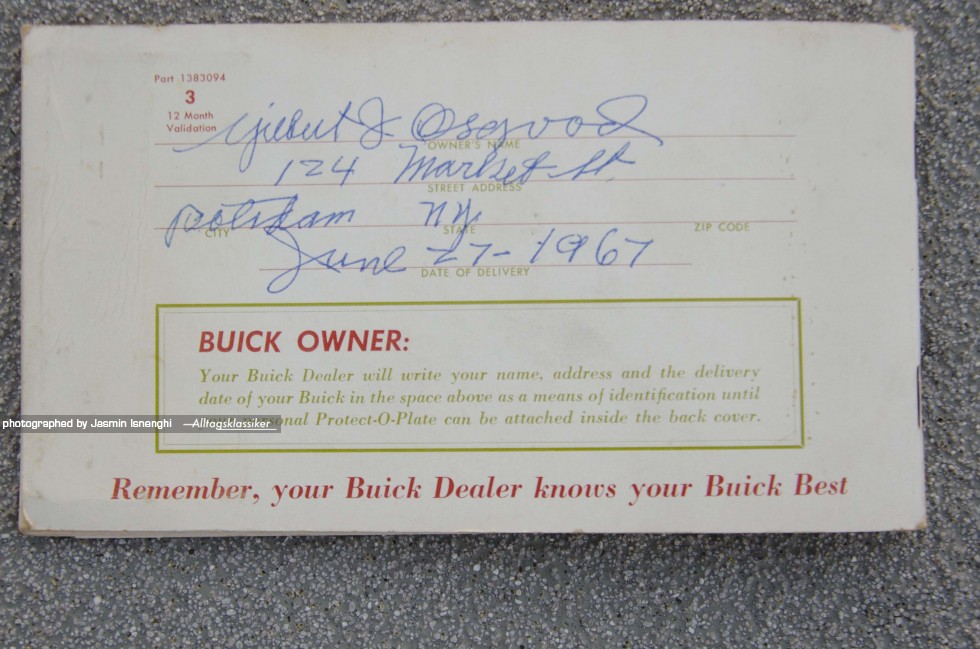 Part 1383094
3
12 Month
Validation
Gilbert J Osgood
OWNER'S NAME
124 Market St.
STREET ADDRESS
Potsdam N.Y.
CITY STATE ZIP CODE
June 27-1967
DATE OF DELIVERY
BUICK OWNER:
Your Buick Dealer will write your name, address and the delivery
date of your Buick in the space above as a means of identification until
Personal Protect-O-Plate can be attached inside the back cover.
photographed by Jasmin Isnenghi —Alltagsklassiker—
Remember, your Buick Dealer knows your Buick Best